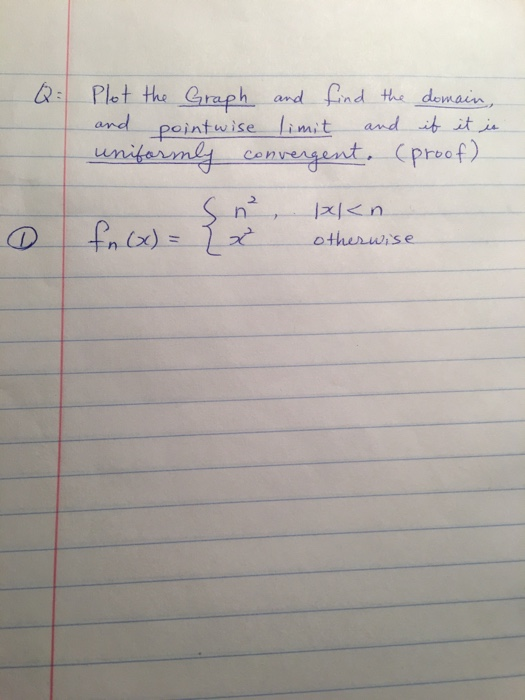 Q: Plot the Graph and find the domain,
and pointwise limit and if it is
uniformly convergent. (proof)
① fn(x) = { n², |x|<n
x² otherwise